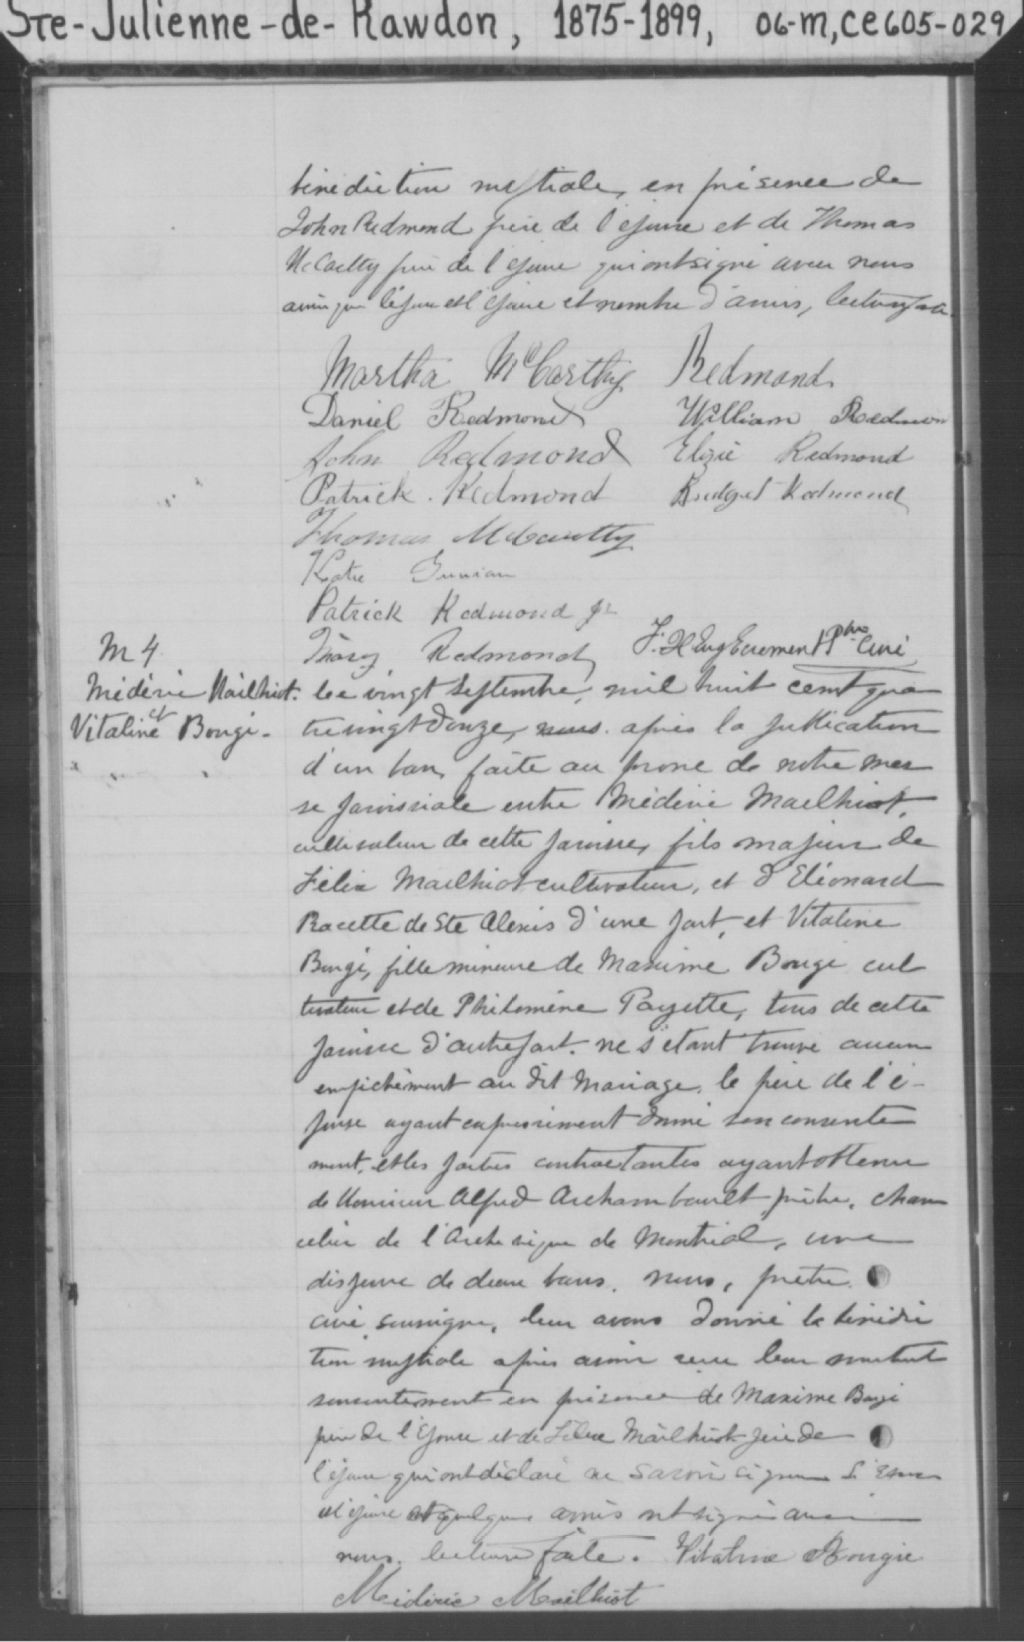 Ste-Julienne-de-Rawdon, 1875-1899, 06-M, CE605-029
bénédiction nuptiale, en présence de
John Redmond père de l'épouse et de Thomas
McCartty père de l'époux qui ont signé avec nous
ainsi que l'époux et l'épouse et nombre d'amis, lecture faite.
Martha McCarthy Redmond
Daniel Redmond William Redmon
John Redmond Elzie Redmond
Patrick Redmond Bridget Redmond
Thomas McCartty
Katie
Patrick Redmond Jr
Mary Redmond F. X. Ptre Curé
M 4
Médéric Mailhiot.
et
Vitaline Bougi.
Le vingt septembre, mil huit cent qua
tre vingt douze, nous après la publication
d'un ban, faite au prone de notre mes
se paroissiale entre Médéric Mailhiot,
cultivateur de cette paroisse, fils majeur de
Félix Mailhiot cultivateur, et d'Eléonard
Racette de Ste Alexis d'une part, et Vitaline
Bougi, fille mineure de Maxime Bougi cul
tivateur et de Philomène Payette, tous de cette
paroisse d'autre part. ne s'étant trouvé aucun
empêchement au dit mariage, le père de l'é-
pouse ayant expressément donné son consente
ment, et les parties contractantes ayant obtenu
de Monsieur Alfred Archambault prêtre, chan
celier de l'Archevêque de Montréal, une
dispense de deux bans, nous, prêtre
curé soussigné, leur avons donné la bénédic
tion nuptiale après avoir reçu leur mutuel
consentement en présence de Maxime Bougi
père de l'épouse et de Félix Mailhiot père de
l'époux qui ont déclaré ne savoir signer L'époux
et l'épouse et quelques amis ont signé avec
nous. lecture faite. Vitaline Bougie
Médéric Mailhiot